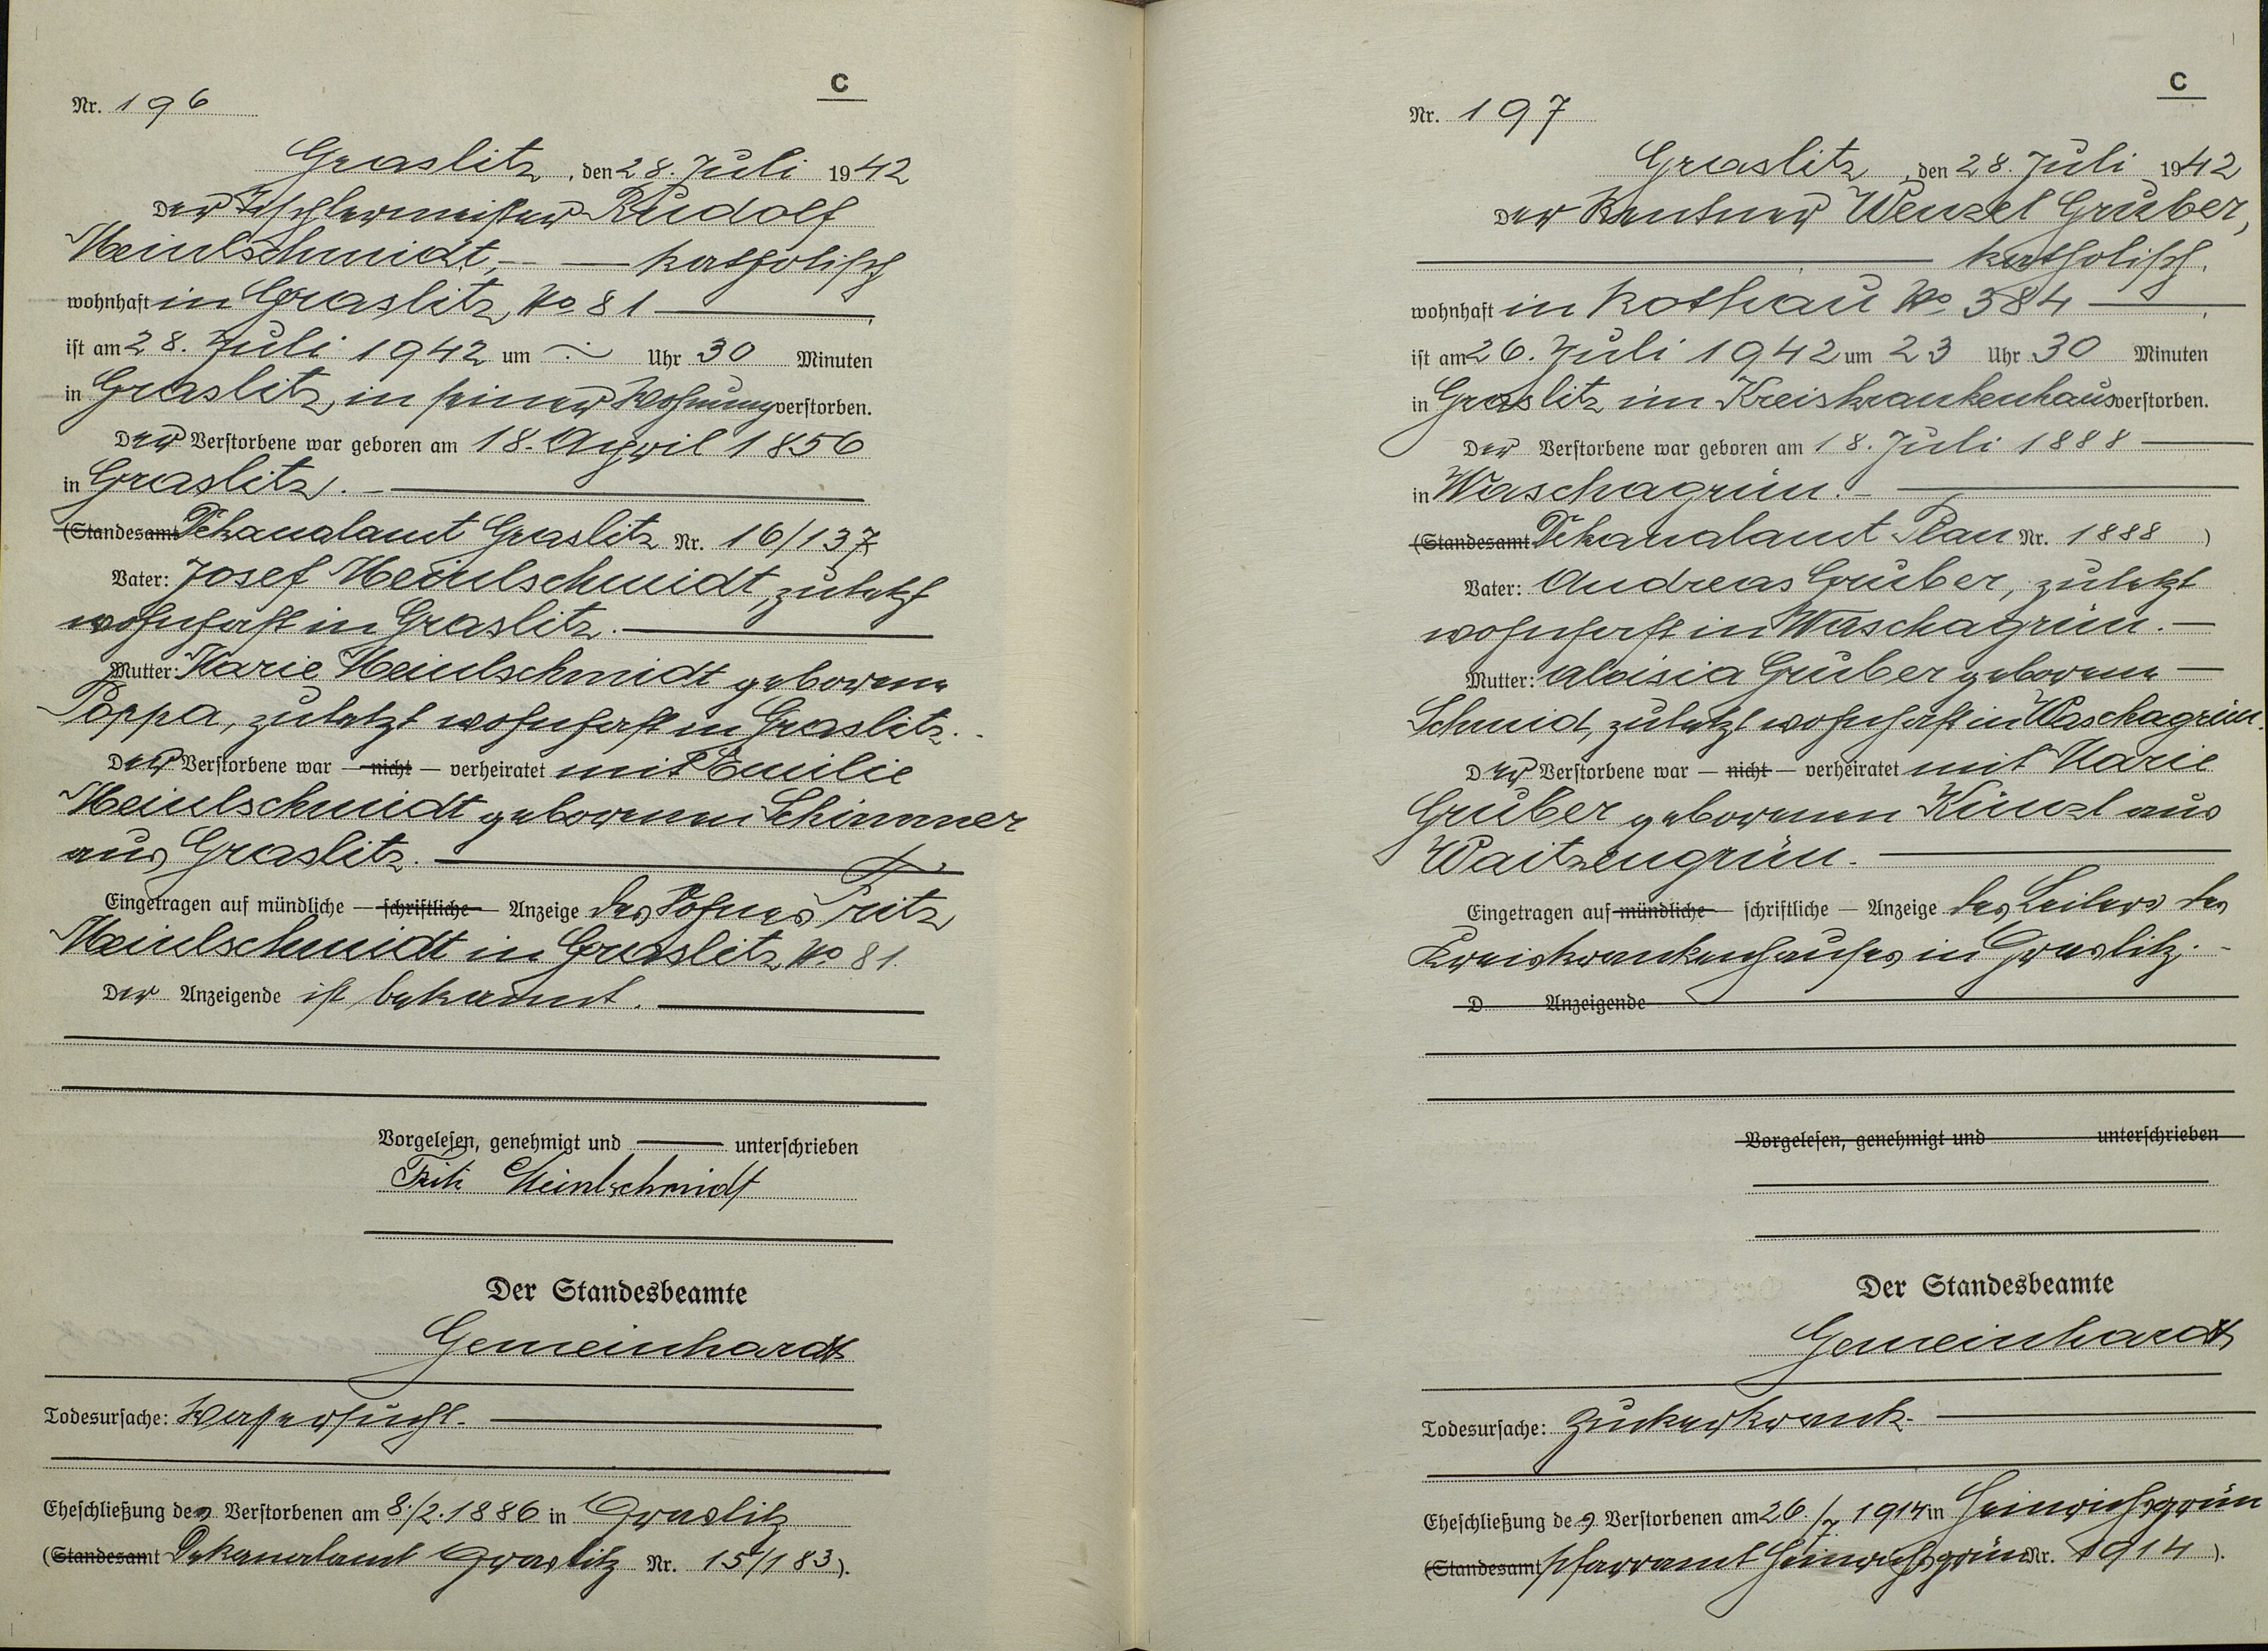 C
Nr. 196
Graslitz, den 28. Juli 1942
Der Tischlermeister Rudolf
Meinlschmidt, — — katholisch
wohnhaft in Graslitz No 81
ist am 28. Juli 1942 um ÷ Uhr 30 Minuten
in Graslitz, in seiner Wohnung verstorben.
Der Verstorbene war geboren am 18. April 1856
in Graslitz.
(Standesamt Dekanalamt Graslitz Nr. 16/137
Vater: Josef Meinlschmidt, zuletzt
wohnhaft in Graslitz.
Mutter: Marie Meinlschmidt geborene
Poppa, zuletzt wohnhaft in Graslitz.
Der Verstorbene war — nicht — verheiratet mit Emilie
Meinlschmidt geborenen Schimmer
aus Graslitz.
Eingetragen auf mündliche — schriftliche — Anzeige des Sohnes Fritz
Meinlschmidt in Graslitz No 81.
Der Anzeigende ist bekannt.
Vorgelesen, genehmigt und unterschrieben
Fritz Meinlschmidt
Der Standesbeamte
Gemeinhardt
Todesursache: Wassersucht.
Eheschließung des Verstorbenen am 8./2.1886 in Graslitz
(Standesamt Dekanalamt Graslitz Nr. 15/183).
C
Nr. 197
Graslitz, den 28. Juli 1942
Der Rentner Wenzel Gruber,
katholisch,
wohnhaft in Rothau No 384
ist am 26. Juli 1942 um 23 Uhr 30 Minuten
in Graslitz im Kreiskrankenhaus verstorben.
Der Verstorbene war geboren am 18. Juli 1888
in Waschagrün.
(Standesamt Dekanalamt Plan Nr. 1888)
Vater: Andreas Gruber, zuletzt
wohnhaft in Waschagrün.
Mutter: Aloisia Gruber geborene
Schmid, zuletzt wohnhaft in Waschagrün.
Der Verstorbene war — nicht — verheiratet mit Marie
Gruber geborenen Künzl aus
Waitzengrün.
Eingetragen auf mündliche — schriftliche — Anzeige des Leiters des
Kreiskrankenhauses in Graslitz.
D Anzeigende
Vorgelesen, genehmigt und unterschrieben
Der Standesbeamte
Gemeinhardt
Todesursache: Zuckerkrank.
Eheschließung des Verstorbenen am 26./7. 1914 in Heinrichsgrün
(Standesamt Pfarramt Heinrichsgrün Nr. 1914).